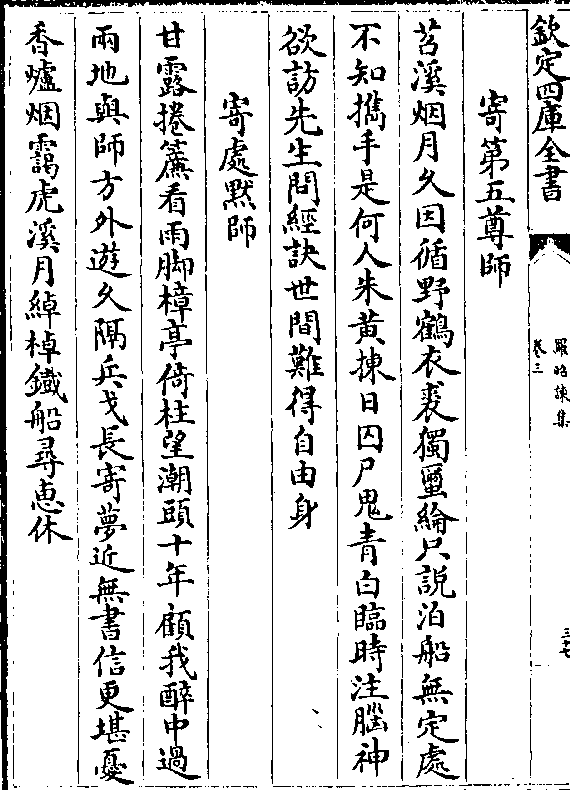 欽定四庫全書
羅昭諫集
卷三
三十七
寄第五尊師
苕溪烟月久因循野鶴衣裘獨蠒綸只說泊船無定處
不知攜手是何人朱黃揀日囚尸鬼青白臨時注腦神
欲訪先生問經訣世間難得自由身
寄處默師
甘露捲簾看雨脚樟亭倚柱望潮頭十年顧我醉中過
兩地與師方外遊久隔兵戈長寄夢近無書信更堪憂
香爐烟靄虎溪月綽棹鐵船尋惠休